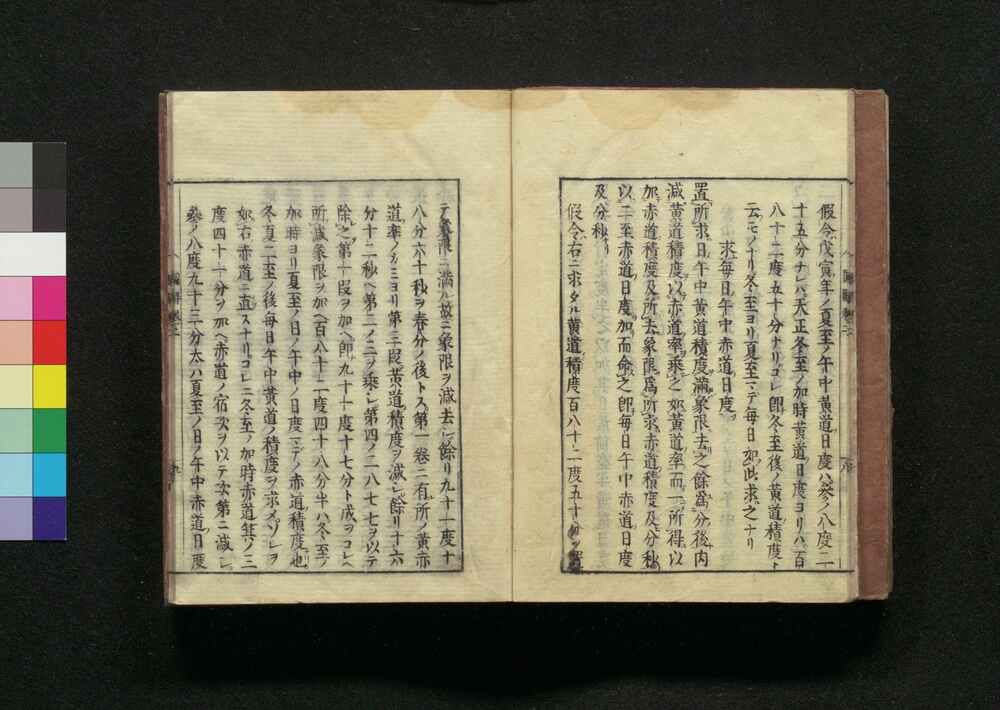 假令戊寅年ノ夏至ノ午中黄道日度ハ參ノ八度二
十五分ナレバ天正冬至ノ加時黄道日度ヨリハ百
八十二度五十分ナリコレ即冬至後ノ黄道積度ト
云モノナリ冬至ヨリ夏至マデ毎日如此求之ナリ
求毎日午中赤道日度
置所求日午中黄道積度滿象限去之餘爲分後内
減黄道積度以赤道率乘之如黄道率而一所得以
加赤道積度及所去象限爲所求赤道積度及分秒
以二至赤道日度加而命之即毎日午中赤道日度
及分秒
假令右ニ求タル黄道積度百八十二度五十分ヲ置
テ象限ニ滿ル故ニ象限ヲ減去シ餘リ九十一度十
八分六十秒ヲ春分ノ後トス第一卷ニ有所ノ黄赤
道率ノカミヨリ第三段黄道積度ヲ減シ餘リ二十六
分十二秒ヘ第二ノ三ヲ乘シ第四ノ二八七七ヲ以テ
除之第十段ヲ加ヘ即九十一度十七分ト成ヲコレヘ
所減象限ヲ加ヘ百八十二度四十八分半ハ冬至ノ
加時ヨリ夏至ノ日ノ午中ノ日度マデノ赤道積度也
冬夏二至ノ後毎日午中黄道ノ積度ヲ求メソレヲ
如右赤道ニ直スナリコレニ冬至ノ加時赤道箕ノ三
度四十一分ヲ加ヘ赤道ノ宿次ヲ以テ次第ニ減シ
參ノ八度九十三分太ハ夏至ノ日ノ午中赤道日度